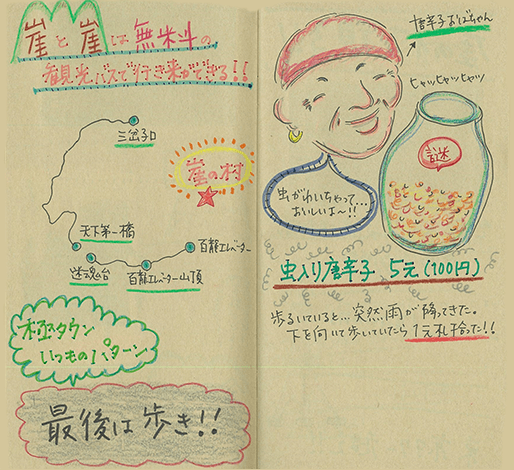 崖と崖は無料の
観光バスで行き来ができる!!
三岔子口
崖の村
天下第一橋
迷魂台
百龍エレベーター山頂
百龍エレベーター
極タウン
いつものパターン
最後は歩き!!
唐辛子おばちゃん
ヒャッヒャッヒャッ
謎
虫がわいちゃって…
おいしいよ〜!!
虫入り唐辛子 5元(100円)
歩るいていると…突然雨が降ってきた。
下を向いて歩いていたら1元札拾った!!